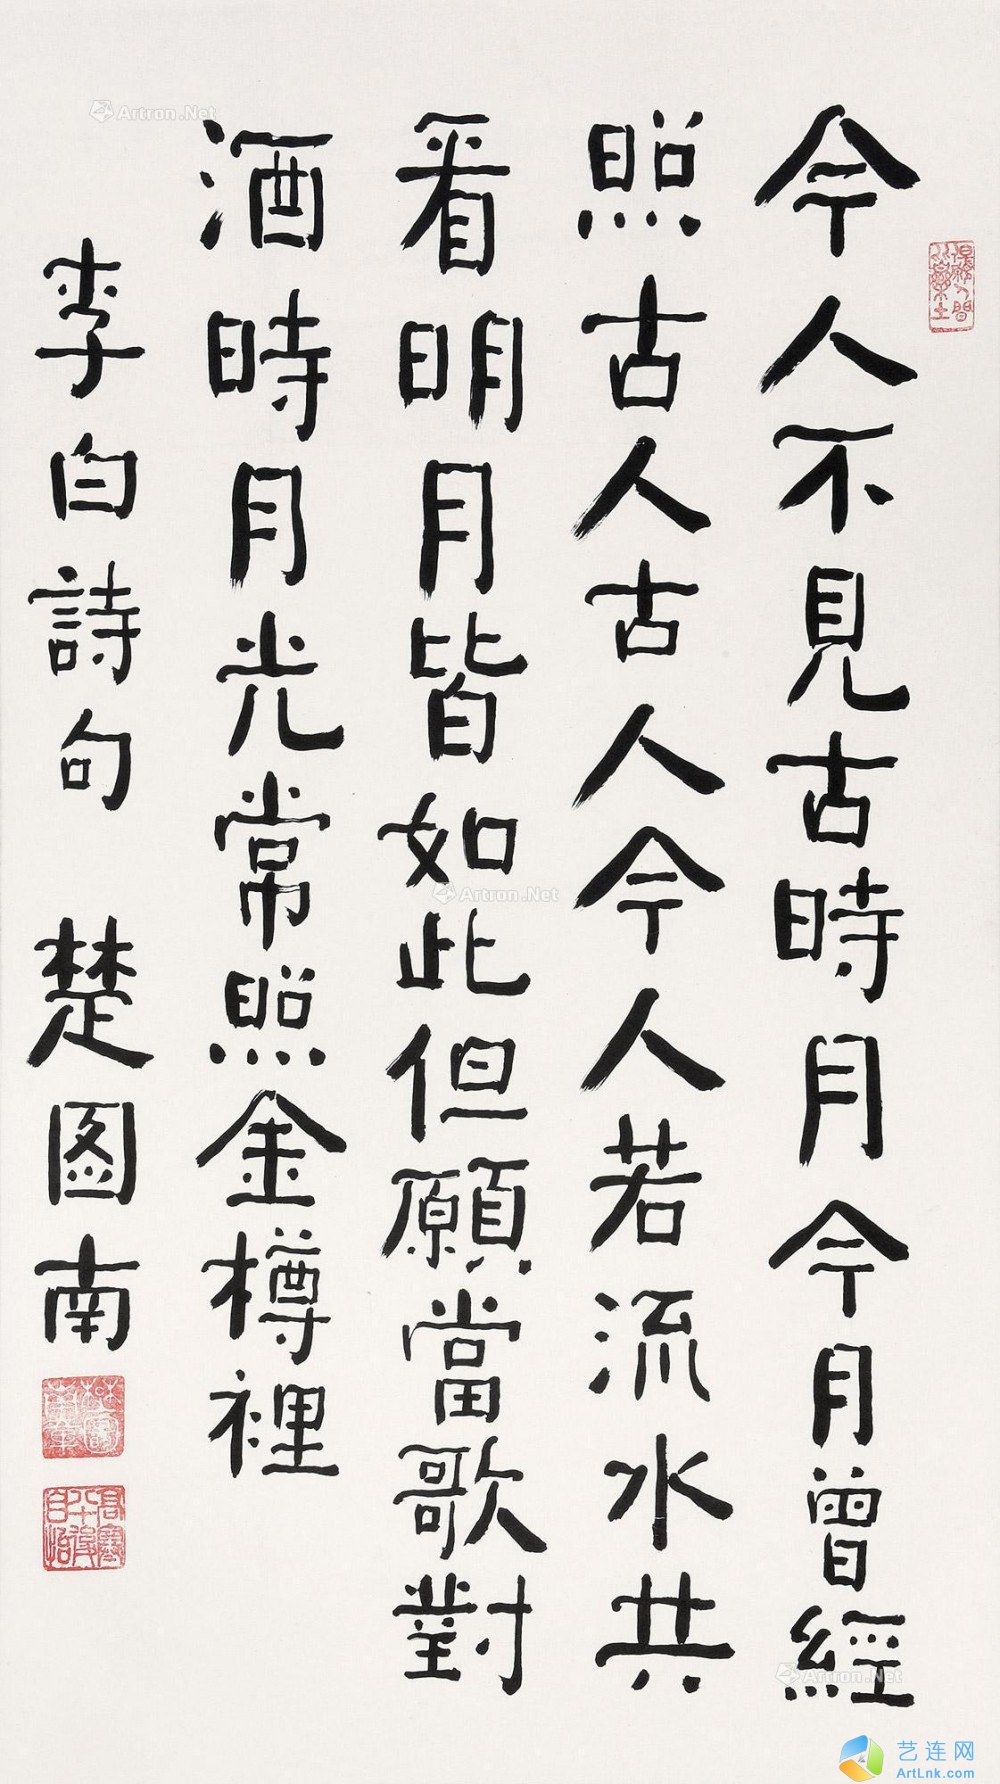 今人不見古時月今月曾經
照古人古人今人若流水共
看明月皆如此但願當歌對
酒時月光常照金樽裡
李白詩句 楚图南
Artron.Net
Artron.Net
Artron.Net
艺连网
ArtLnk.com